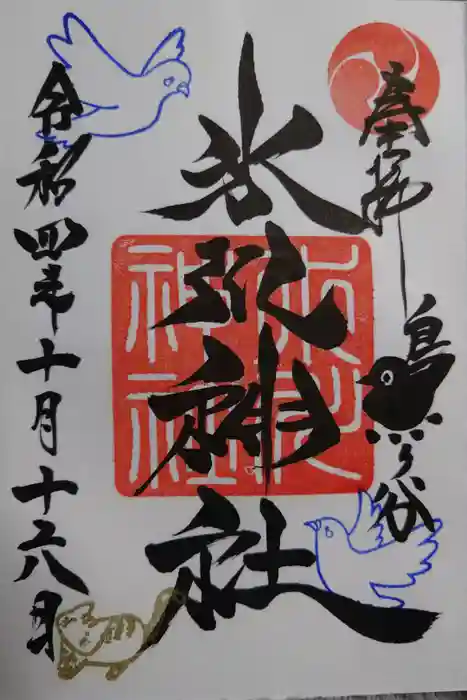 奉拝
鳩ヶ谷
氷川神社
氷川
神社
令和四年十月十六日